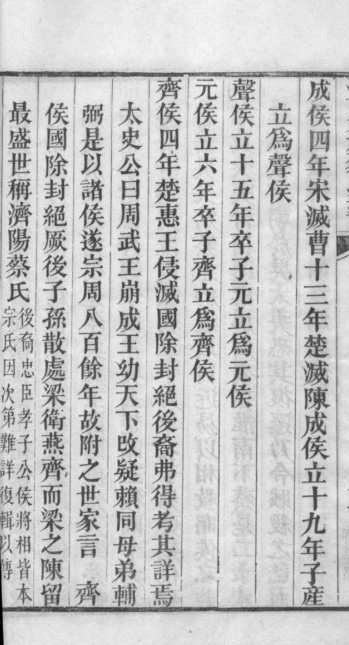 成侯四年宋滅曹十三年楚滅陳成侯立十九年子産
立爲聲侯
聲侯立十五年卒子元立爲元侯
元侯立六年卒子齊立爲齊侯
齊侯四年楚惠王侵滅國除封絕後裔弗得考其詳焉
太史公曰周武王崩成王幼天下攺疑賴同母弟輔
弼是以諸侯遂宗周八百餘年故附之世家言　齊
侯國除封絕厥後子孫散處梁衛燕齊而梁之陳留
最盛世稱濟陽蔡氏後裔忠臣孝子公侯將相皆本
宗氏因次第難詳復輯以傳